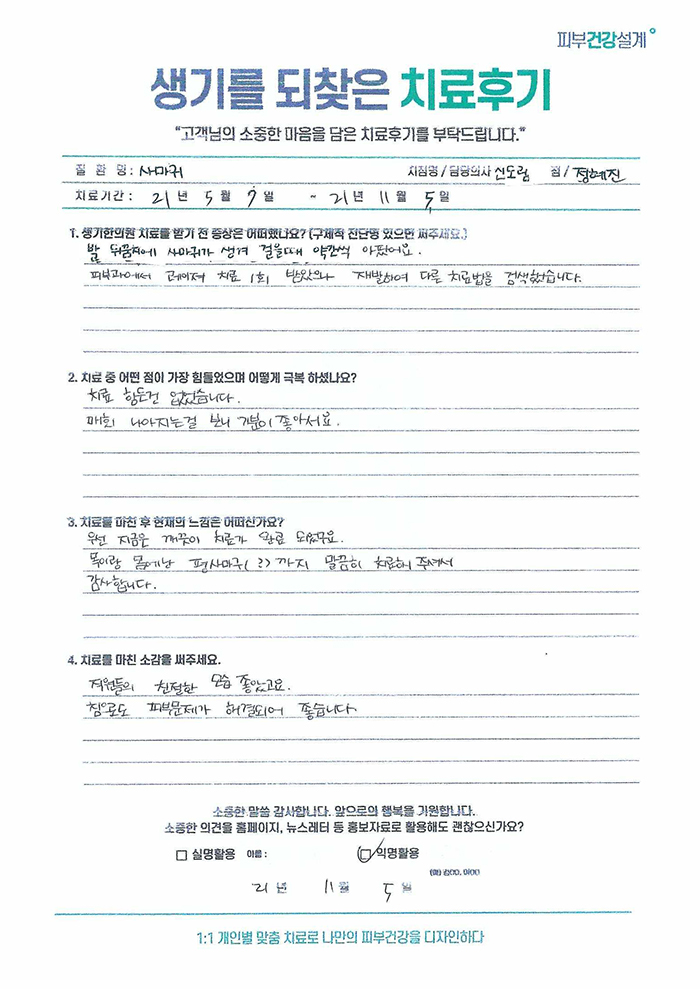 피부건강설계
생기를 되찾은 치료후기
"고객님의 소중한 마음을 담은 치료후기를 부탁드립니다."
질 환 명 : 사마귀 지점명 / 담당의사 신도림 점 / 정혜진
치료기간 : 21 년 5 월 7 일 ~ 21 년 11 월 5 일
1. 생기한의원 치료를 받기 전 증상은 어떠했나요? (구체적 진단명 있으면 써주세요.)
발 뒤꿈치에 사마귀가 생겨 걸을때 약간씩 아팠어요.
피부과에서 레이져 치료 1회 받았으나 재발하여 다른 치료법을 검색했습니다.
2. 치료 중 어떤 점이 가장 힘들었으며 어떻게 극복 하셨나요?
치료 힘든건 없었습니다.
매회 나아지는걸 보니 기분이 좋아서요.
3. 치료를 마친 후 현재의 느낌은 어떠신가요?
우선 지금은 깨끗이 치료가 완료 되었구요.
목이랑 몸에난 편사마귀 까지 말끔히 치료해 주셔서
감사합니다.
4. 치료를 마친 소감을 써주세요.
직원들의 친절한 모습 좋았고요.
침으로도 피부문제가 해결되어 좋습니다.
소중한 말씀 감사합니다. 앞으로의 행복을 기원합니다.
소중한 의견을 홈페이지, 뉴스레터 등 홍보자료로 활용해도 괜찮으신가요?
실명활용 이름 : 익명활용
(예) 김OO, 이OO
21 년 11 월 5 일
1:1 개인별 맞춤 치료로 나만의 피부건강을 디자인하다